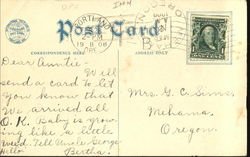 Post Card
CORRESPONDENCE HERE
ADDRESS ONLY
PORTLAND
ORE
Dear Auntie:- Will
send a card to let
you know that
we arrived all
O.K. Baby is grow-
ing like a little
weed. Tell Uncle George
Hello
Bertha.
Mrs. G. C. Sims.
Mehama,
Oregon.